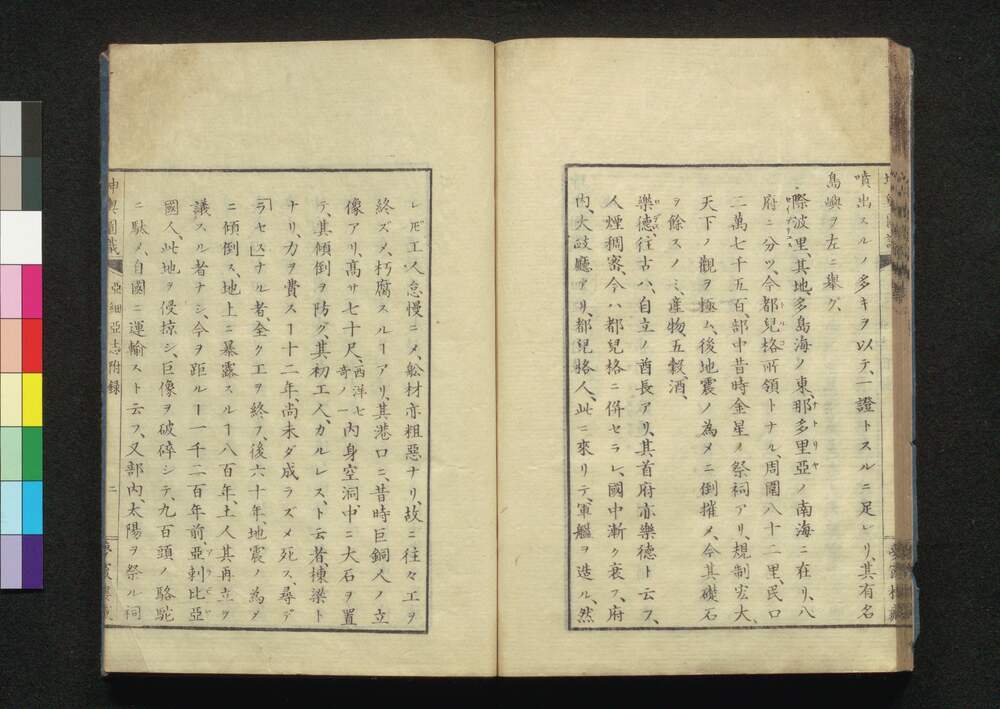 噴出スルノ多キヲ以テ、一證トスルニ足レリ、其有名
島嶼ヲ左ニ擧グ、
際波里、其地、多島海ノ東、那多里亞ノ南海ニ在リ、八
府ニ分ツ、今都兒格所領トナル、周圍八十二里、民口
二萬七千五百、部中昔時金星ノ祭祠アリ、規制宏大
天下ノ觀ヲ極ム、後地震ノ為メニ倒摧メ、今其礎石
ヲ餘スノミ、產物、五穀、酒、
樂德、往古ハ、自立ノ酋長アリ、其首府亦樂德ト云フ、
人煙稠密、今ハ都兒格ニ併セラレ、國中漸ク衰フ、府
内、大鼓廳アリ、都兒格人、此ニ來リテ、軍艦ヲ造ル、然
レ𪜈工人怠慢ニメ、舩材亦粗惡ナリ、故ニ往々工ヲ
終ズメ、朽腐スルヿアリ、其港口ニ、昔時巨銅人ノ立
像アリ、髙サ七十尺、西洋七奇ノ一内身空洞、中ニ大石ヲ置
テ、其傾倒ヲ防グ、其初工人、カルレス、ト云者、棟梁ト
ナリ、力ヲ費スヿ十二年、尚未ダ成ラズメ死ス、尋デ
「ラセス」ナル者、全ク工ヲ終フ、後六十年、地震ノ為メ
ニ傾倒ス、地上ニ暴露スルヿ八百年、土人其再立ヲ
議スル者ナシ、今ヲ距ルヿ一千二百年前、亞剌比亞
國人、此地ヲ侵掠シ、巨像ヲ破碎シテ、九百頭ノ駱駝
ニ駄メ、自國ニ運輸スト云フ、又部内、太陽ヲ祭ル祠
坤輿圖識
亞細亞志附録
二